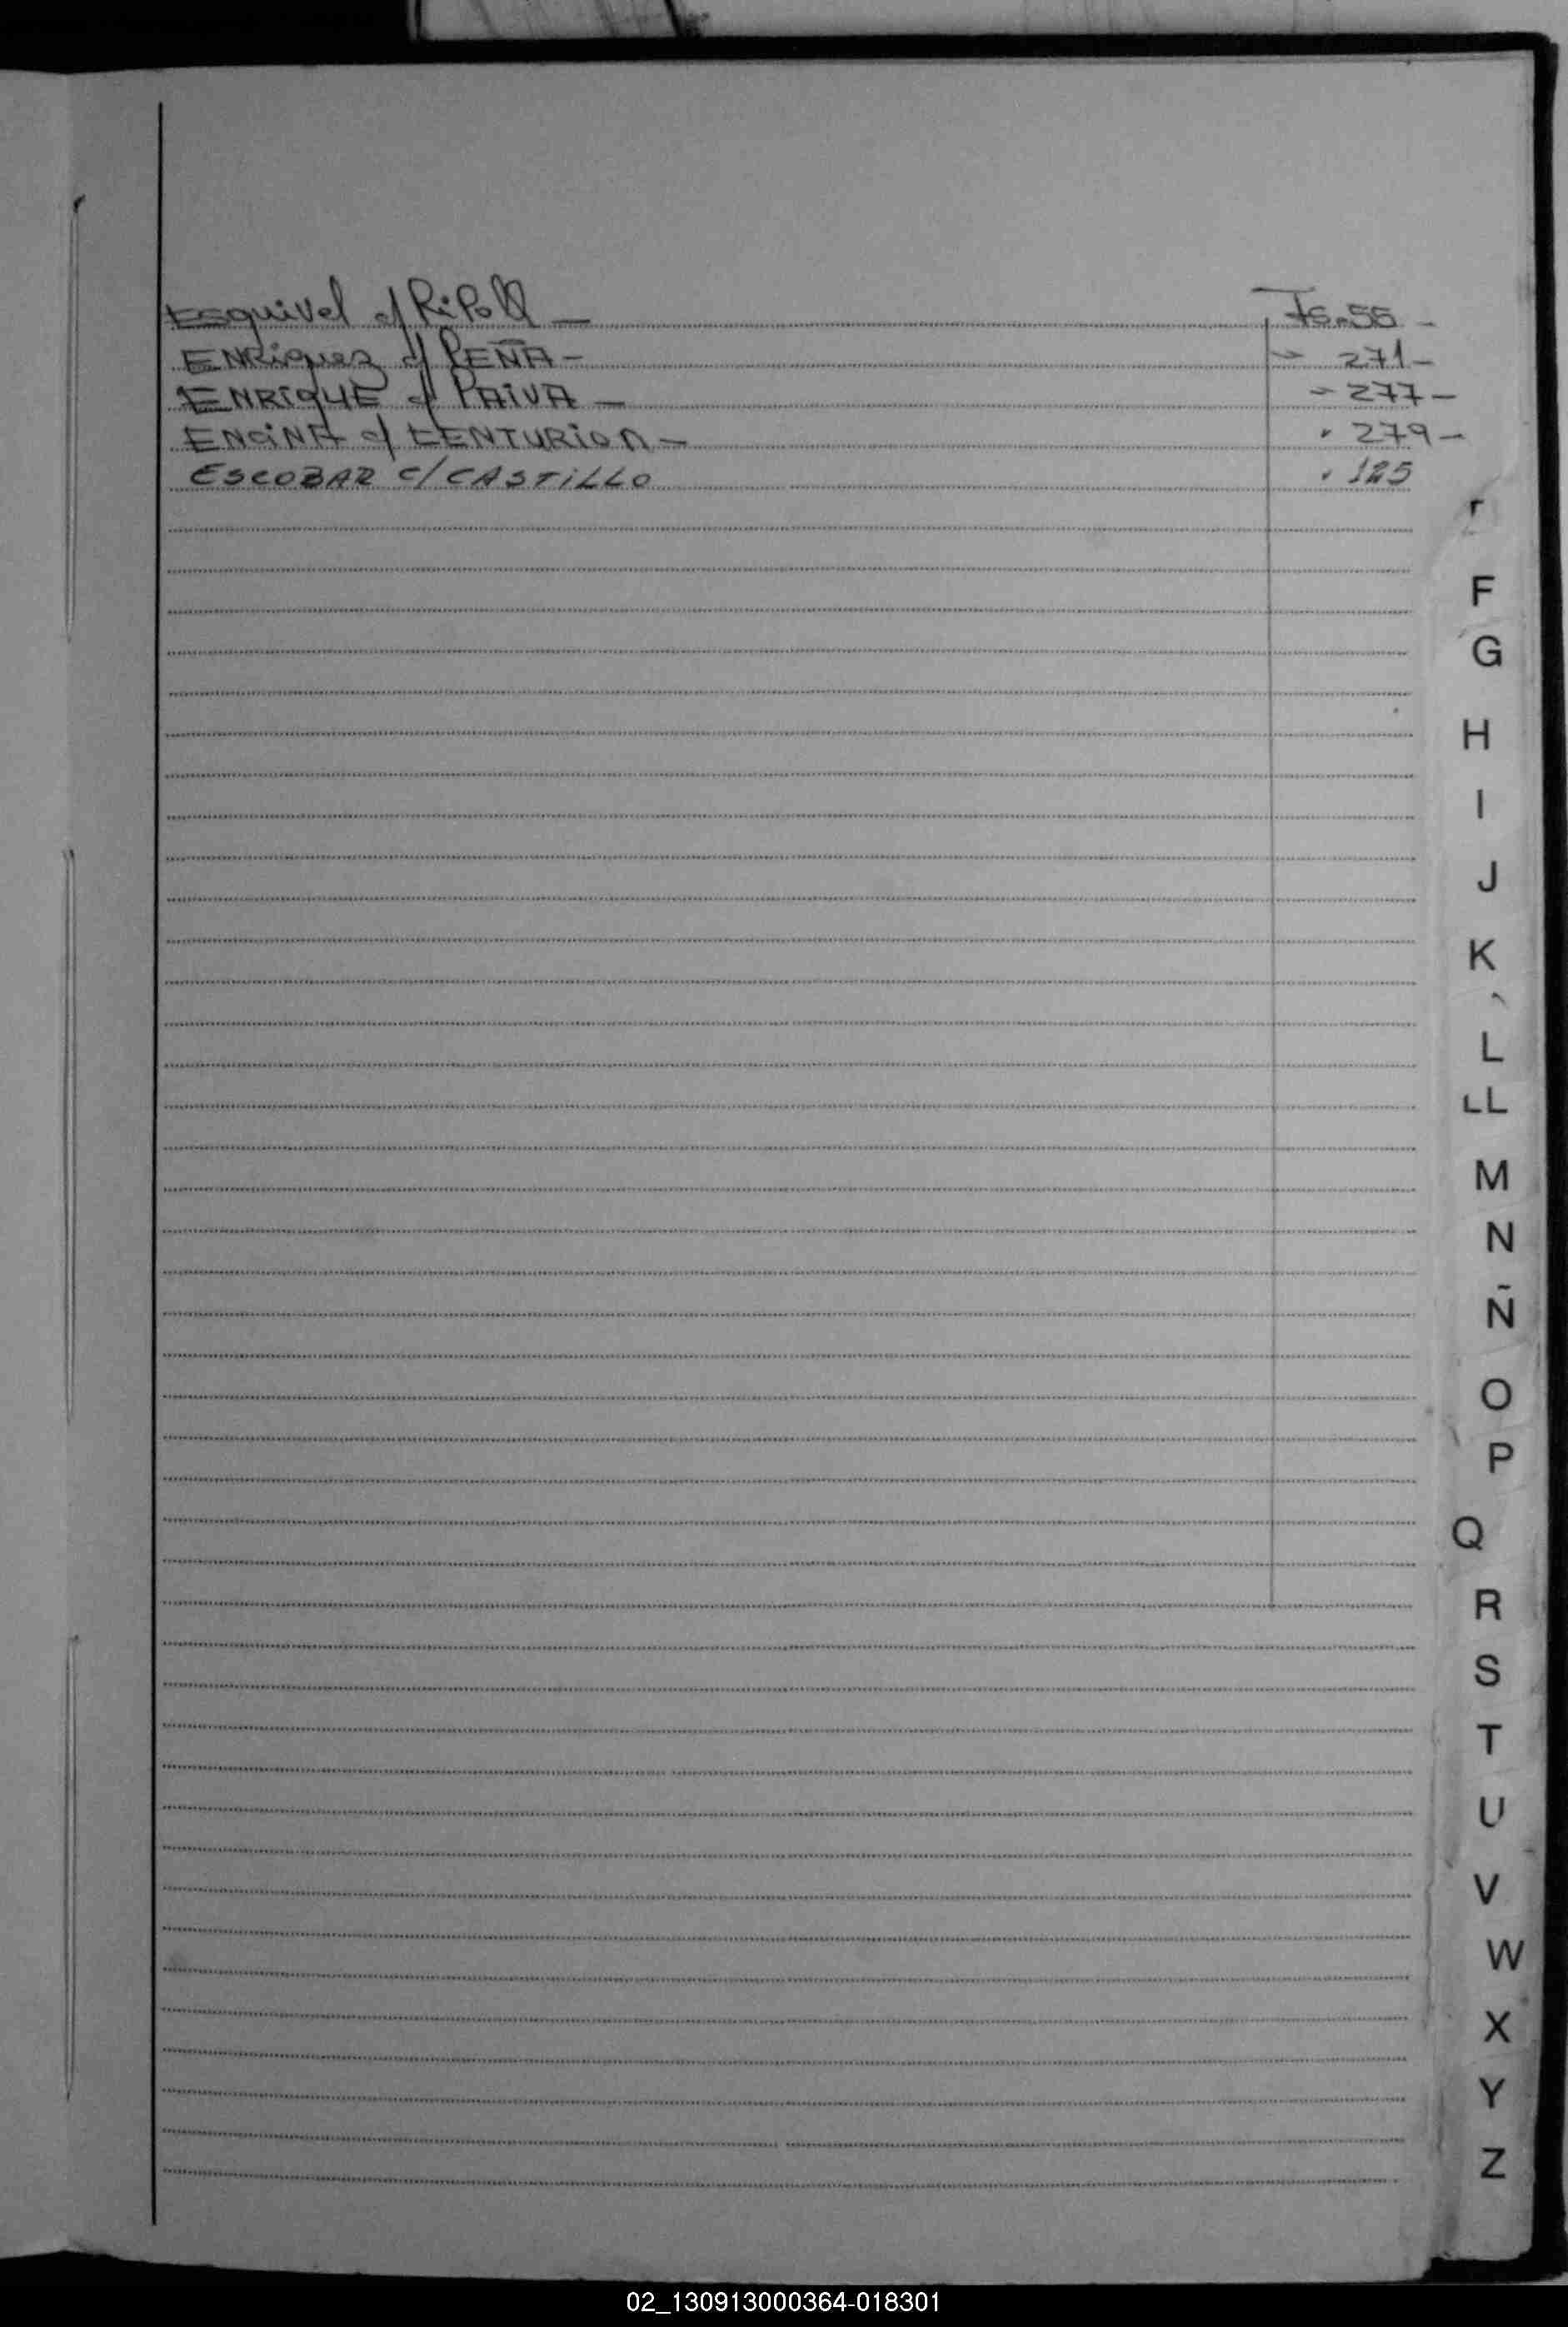 Esquivel c/ RiPoll — Fs. 55 -
ENRiquez c/ PEÑA - " 271 -
ENRiQUE c/ PAiVA - " 277 -
ENCiNA c/ CENTURiON - " 279 -
ESCOBAR c/ CASTiLLO " 125
F
G
H
I
J
K
L
LL
M
N
Ñ
O
P
Q
R
S
T
U
V
W
X
Y
Z
02_130913000364-018301